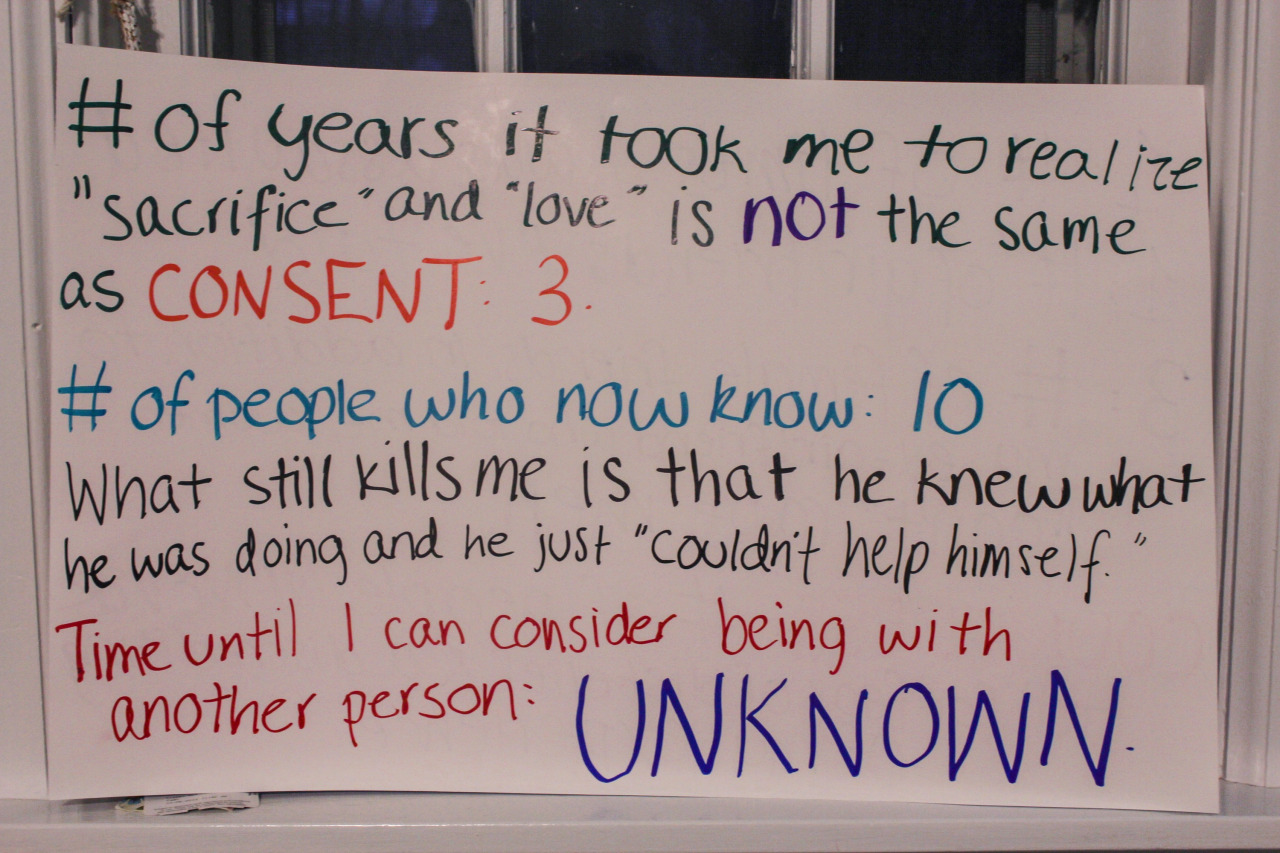 # of years it took me to realize
"sacrifice" and "love" is not the same
as CONSENT: 3.
# of people who now know: 10
What still kills me is that he knew what
he was doing and he just "couldn't help himself."
Time until I can consider being with
another person: UNKNOWN.